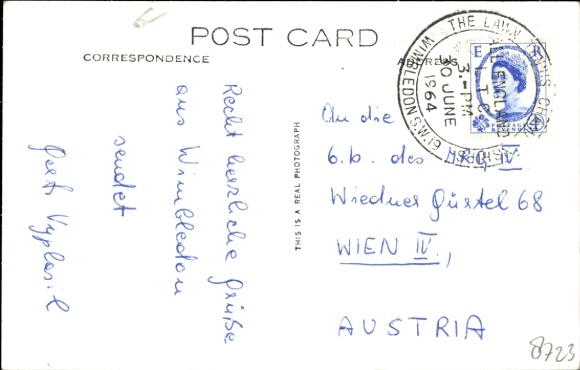 6
POST CARD
CORRESPONDENCE
ADDRESS
THE LAWN TENNIS CHAMPIONSHIPS
WIMBLEDON S.W.19
ALL ENGLAND
L.T.C.
3.-PM
30 JUNE
1964
E R
POSTAGE
REVENUE
Recht herzliche Grüße
aus Wimbledon
sendet
THIS IS A REAL PHOTOGRAPH
An die
6.b. des MRG IV
Wiedner Gürtel 68
WIEN IV.,
AUSTRIA
8723